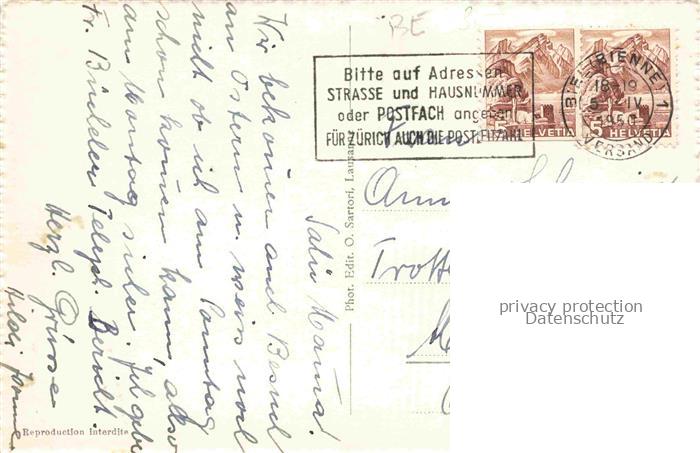 BE
Bitte auf Adressen
STRASSE und HAUSNUMMER
oder POSTFACH angeben
FÜR ZÜRICH AUCH DIE POSTLEITZAHL
BIEL (BIENNE) 1
18-19
5. IV.
1950
VERSAND
5 HELVETIA
5 HELVETIA
Salü Mama!
Wir bekommen auch Besuch
an Ostern u. weiss noch
nicht ob ich am Sonntag
schon kommen kann, also
am Montag sicher. Ich gebe
Fr. Bündler Teleph. Bericht.
Herzl. Grüsse
Hildi
Phot. Edit. O. Sartori, Lausanne
Reproduction interdite
Frau
Trotte
privacy protection
Datenschutz